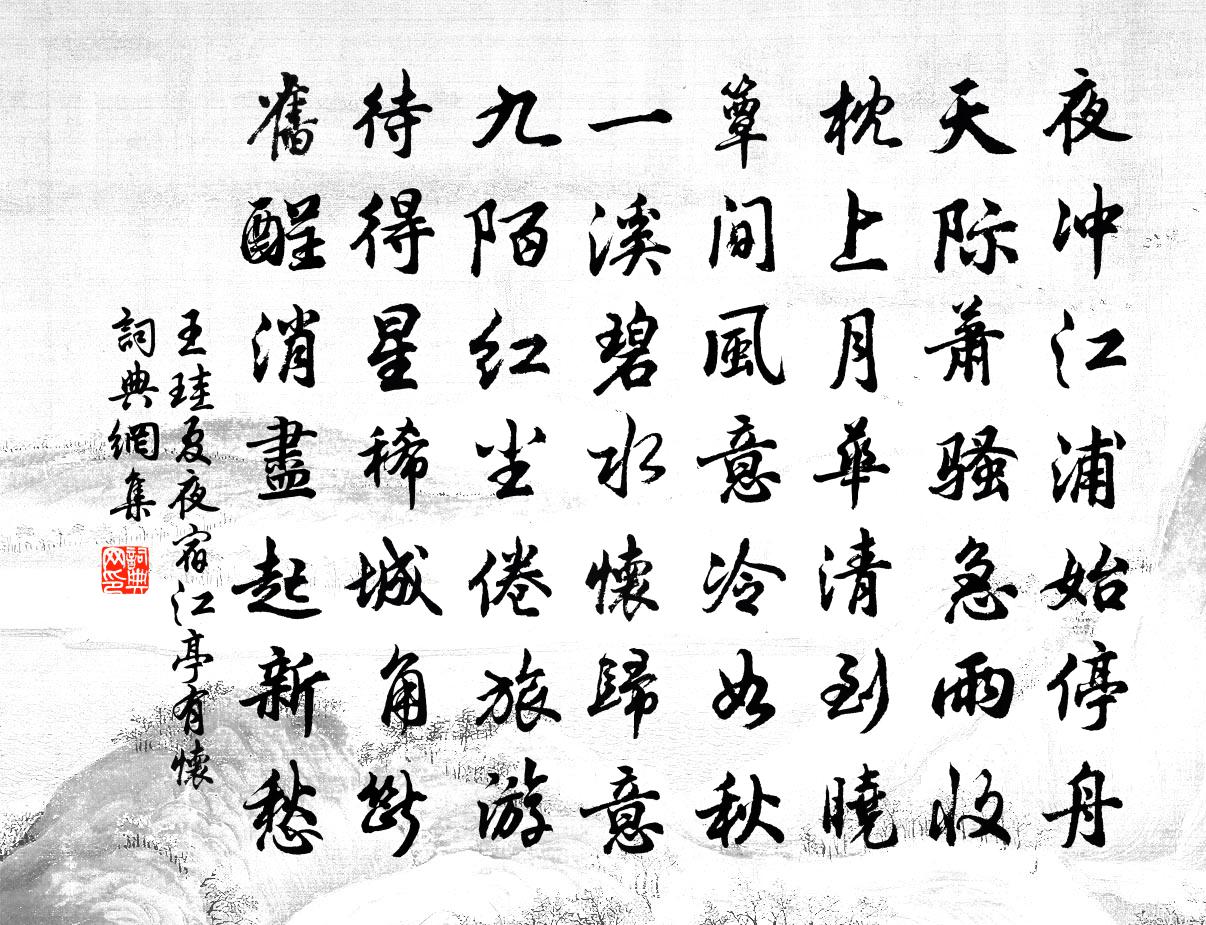 夜冲江浦始停舟
天际萧骚急雨收
枕上月華清到曉
簟间風意冷如秋
一溪碧水懷歸意
九陌红尘倦旅游
待得星稀城角斷
舊醒消盡起新愁
王珪夏夜宿江亭有懷
詞典網集
詞典网印